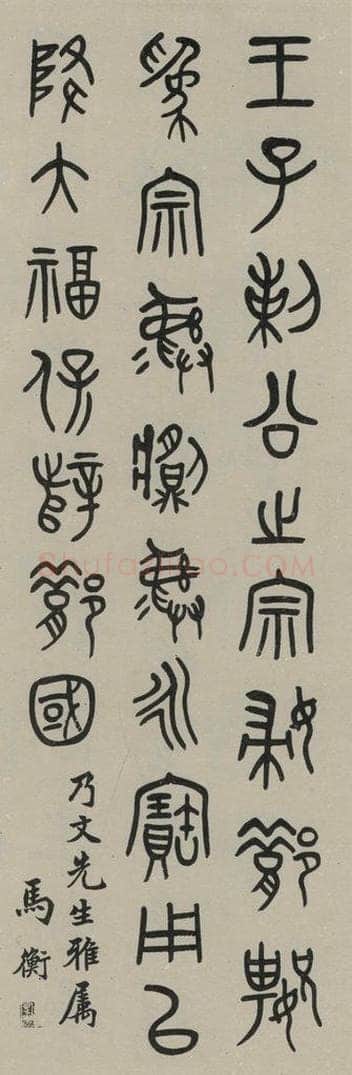 王子剌公之宗婦
為宗彝䵼彝永寶用㠯
降大福保辥國
乃文先生雅属
馬衡